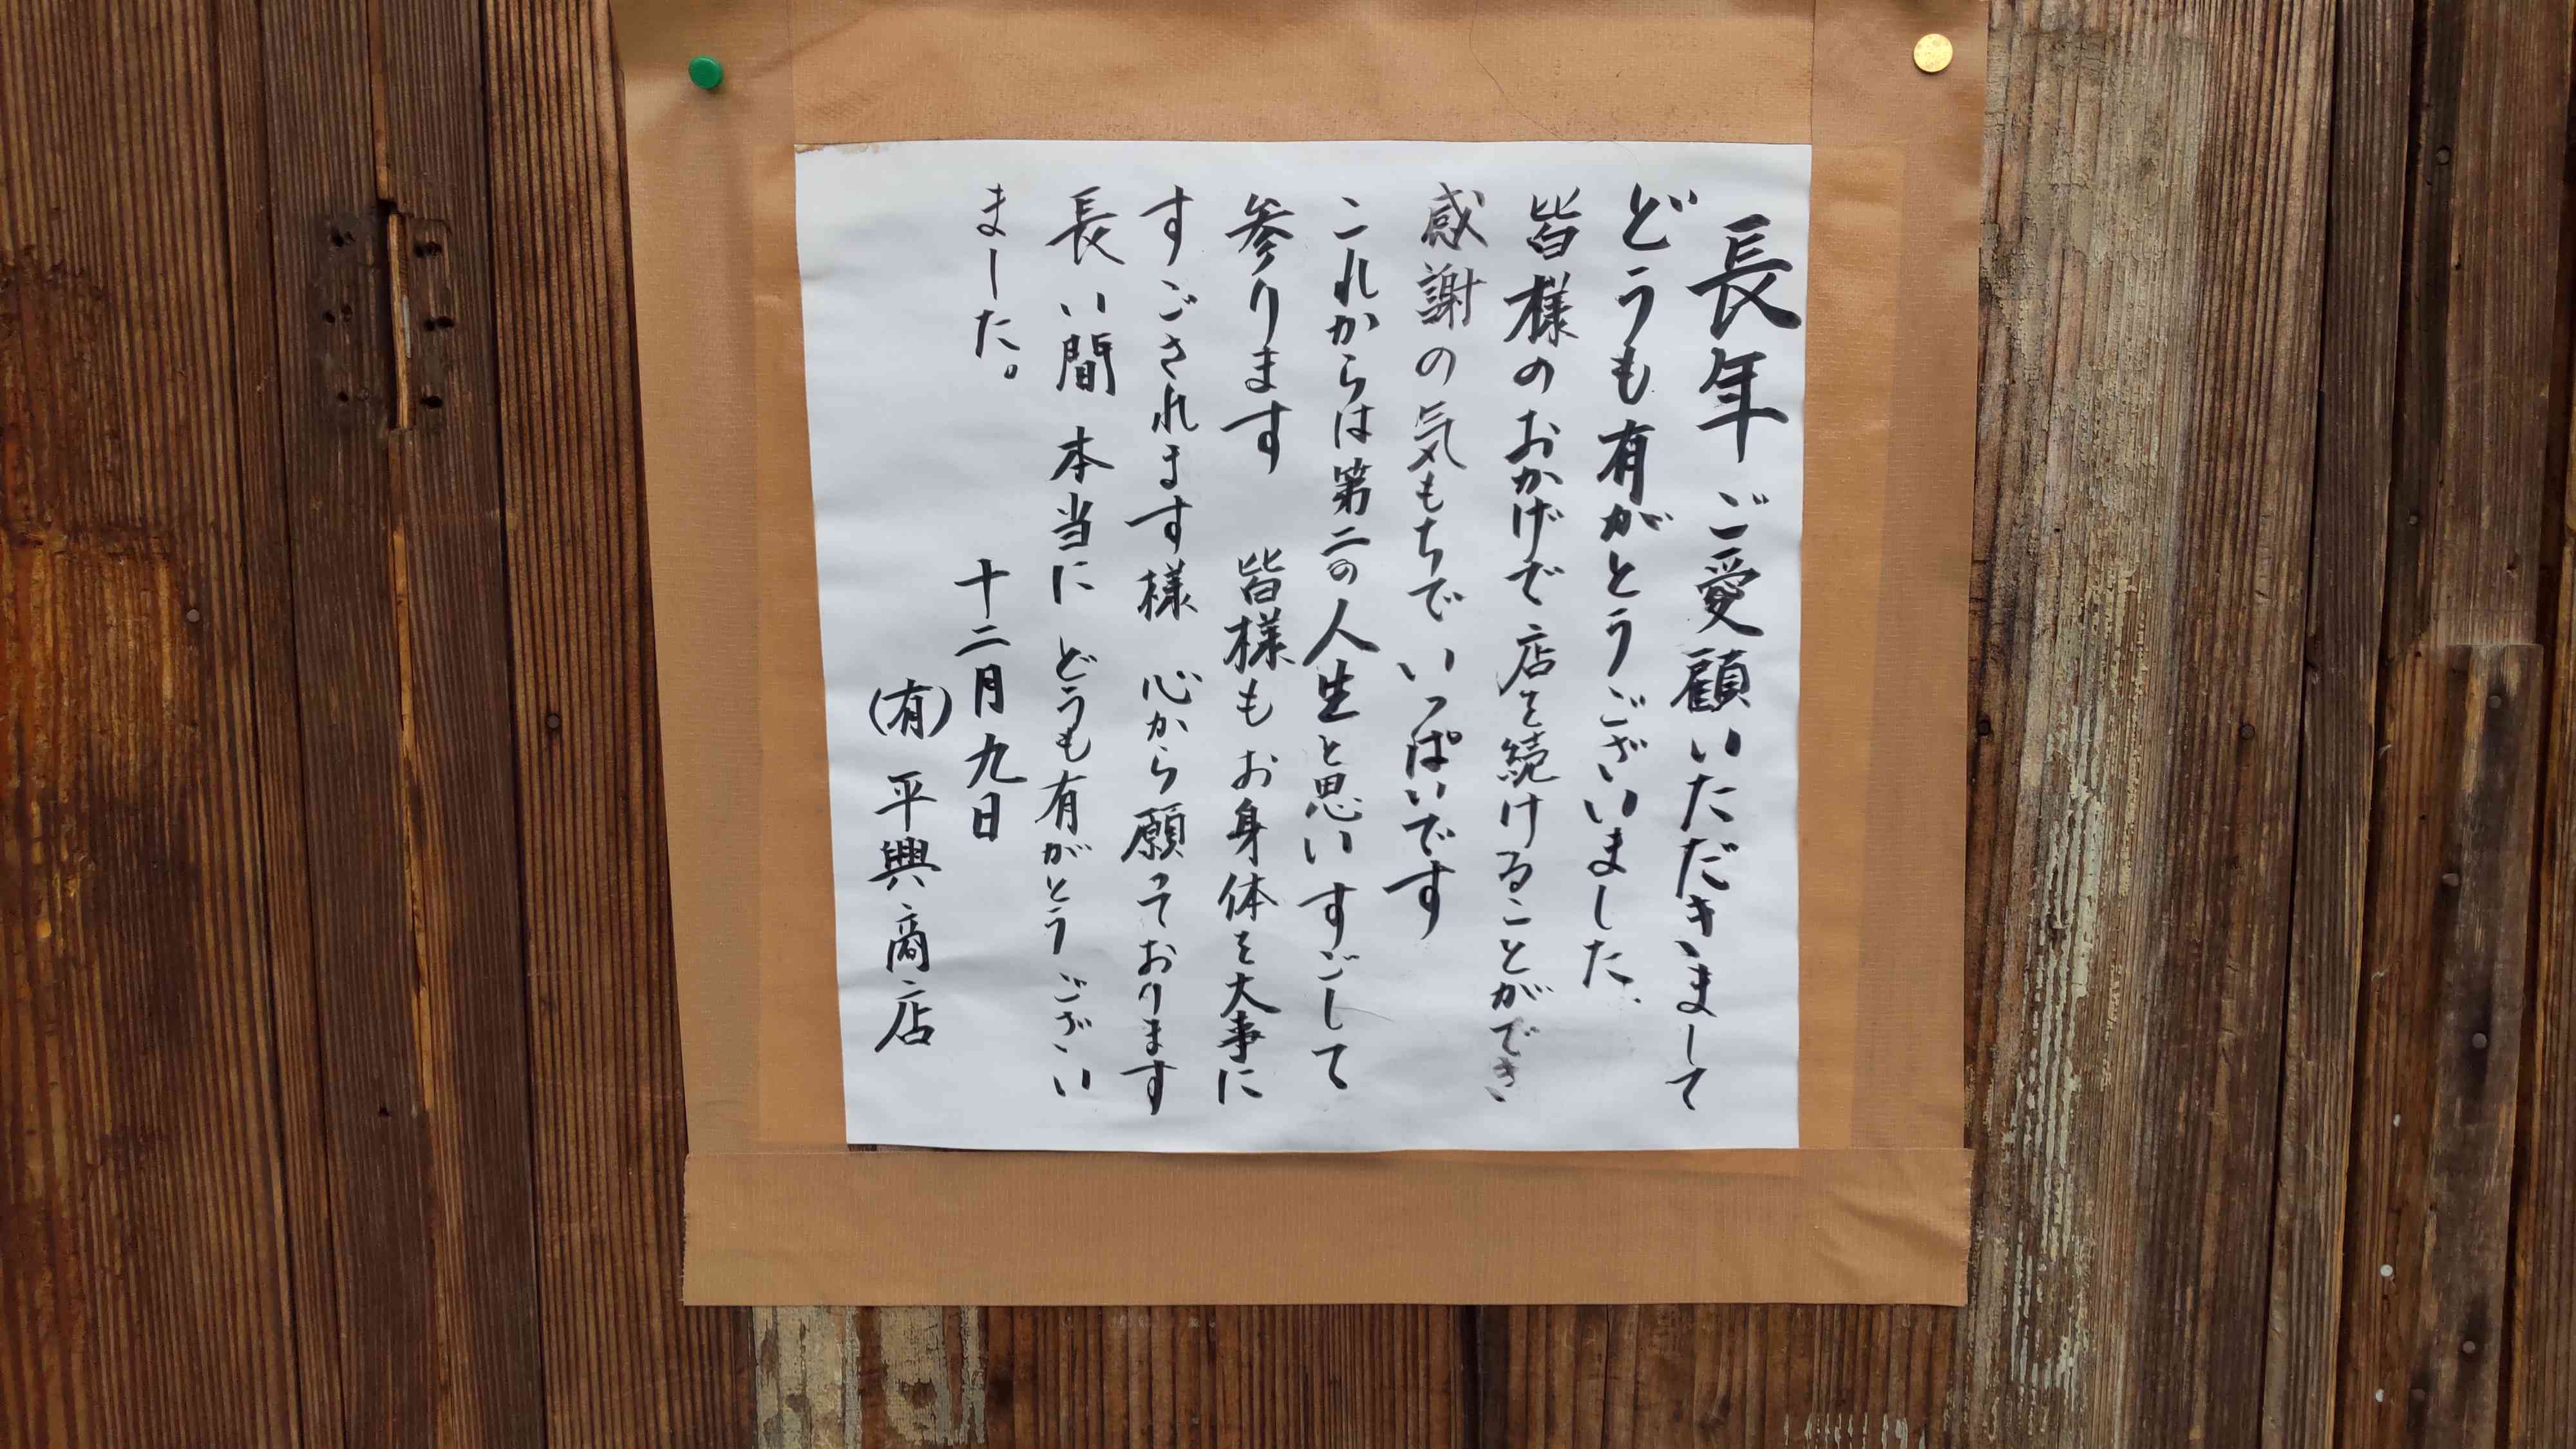 長年ご愛顧いただきまして
どうも有がとうございました.
皆様のおかげで店を続けることができ
感謝の気もちでいっぱいです
これからは第二の人生と思いすごして
参ります 皆様もお身体を大事に
すごされます様 心から願っております
長い間 本当に どうも有がとうござい
ました。
十二月九日
(有) 平興商店